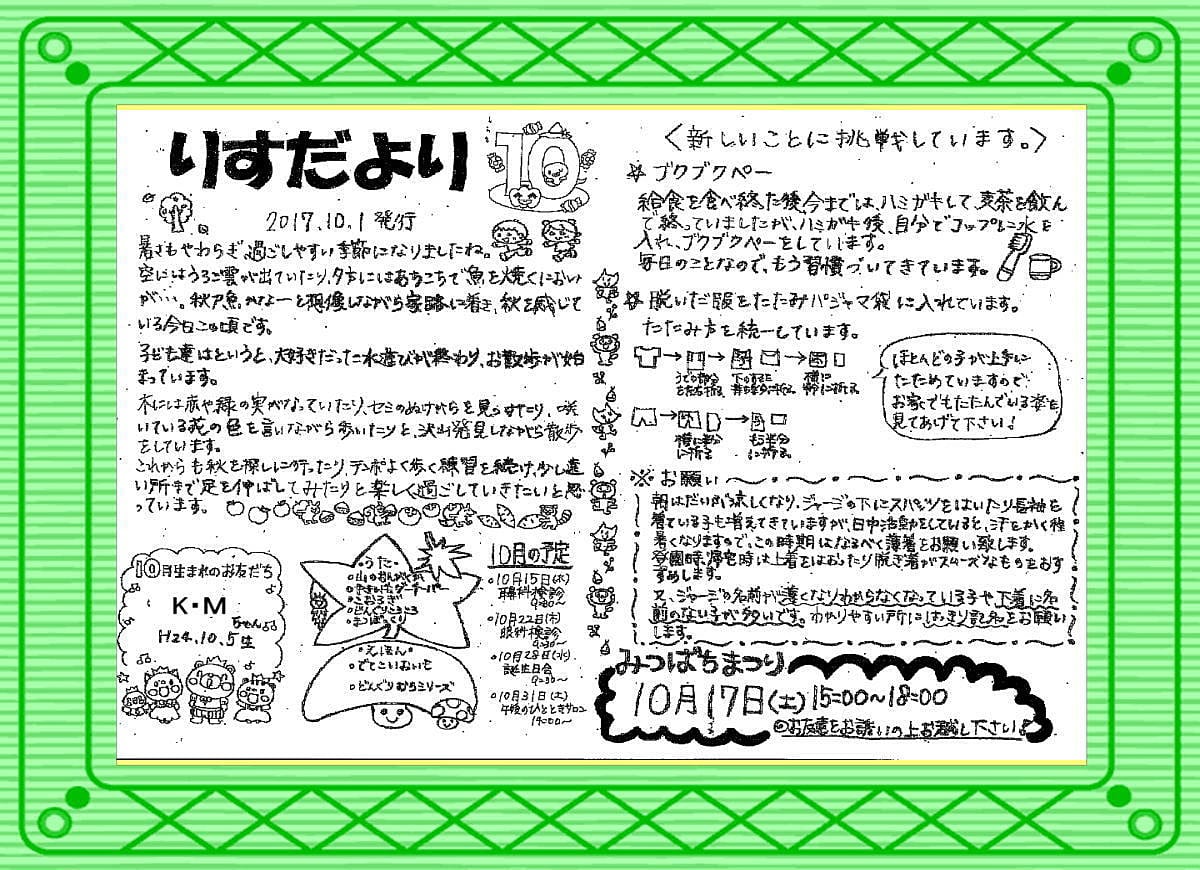 りすだより
10
2017.10.1 発行
暑さもやわらぎ、過ごしやすい季節になりましたね。
空にはうろこ雲が出ていたり、夕方にはあちこちで魚を焼くにおい
が…。秋刀魚かなーと想像しながら家路に着き、秋を感じて
いる今日この頃です。
子ども達はというと、大好きだった水遊びが終わり、お散歩が始
まっています。
木には赤や緑の実がなっていたり、セミのぬけがらを見つけたり、咲
いている花の色を言いながら歩いたりと、沢山発見しながら散歩
をしています。
これからも秋を探しに行ったり、テンポよく歩く練習を続け、少し遠
い所まで足を伸ばしてみたりと楽しく過ごしていきたいと思
っています。
10月生まれのお友だち
K・M
ちゃん
H24.10.5生
・うた・
山のおんがくか
やきいもグーチーパー
こおろぎ
どんぐりころころ
まつぼっくり
・えほん・
・でてこいおいも
・どんぐりむらシリーズ
10月の予定
・10月15日(木)
耳鼻科検診
9:30〜
・10月22日(木)
眼科検診
9:30〜
・10月28日(水)
誕生日会
9:30〜
・10月31日(土)
午後のひとときサロン
14:00〜
〈新しいことに挑戦しています。〉
☆ ブクブクペー
給食を食べ終った後、今までは、ハミガキして、麦茶を飲ん
で終っていましたが、ハミガキ後、自分でコップに水を
入れ、ブクブクペーをしています。
毎日のことなので、もう習慣づいてきています。
☆ 脱いだ服をたたみパジャマ袋に入れています。
たたみ方を統一しています。
横に半分に折る
もう半分に折る
ほとんどの子が上手に
たためていますので
お家でもたたんでいる姿を
見てあげて下さい♪
※お願い
朝はだいぶ涼しくなり、ジャージの下にスパッツをはいたり長袖を
着ている子も増えてきていますが、日中活動をしていると、汗をかく程
暑くなりますので、この時期はなるべく薄着をお願い致します。
登園時、帰宅時は上着をはおったり脱ぎ着がスムーズなものをおす
すめします。
又、ジャージの名前が薄くなりわからなくなっている子や、下着に名
前のない子が多いです。わかりやすい所にはっきり記名をお願い
します。
みつばちまつり
10月17日(土) 15:00〜18:00
◎お友達をお誘いの上お越し下さい♪